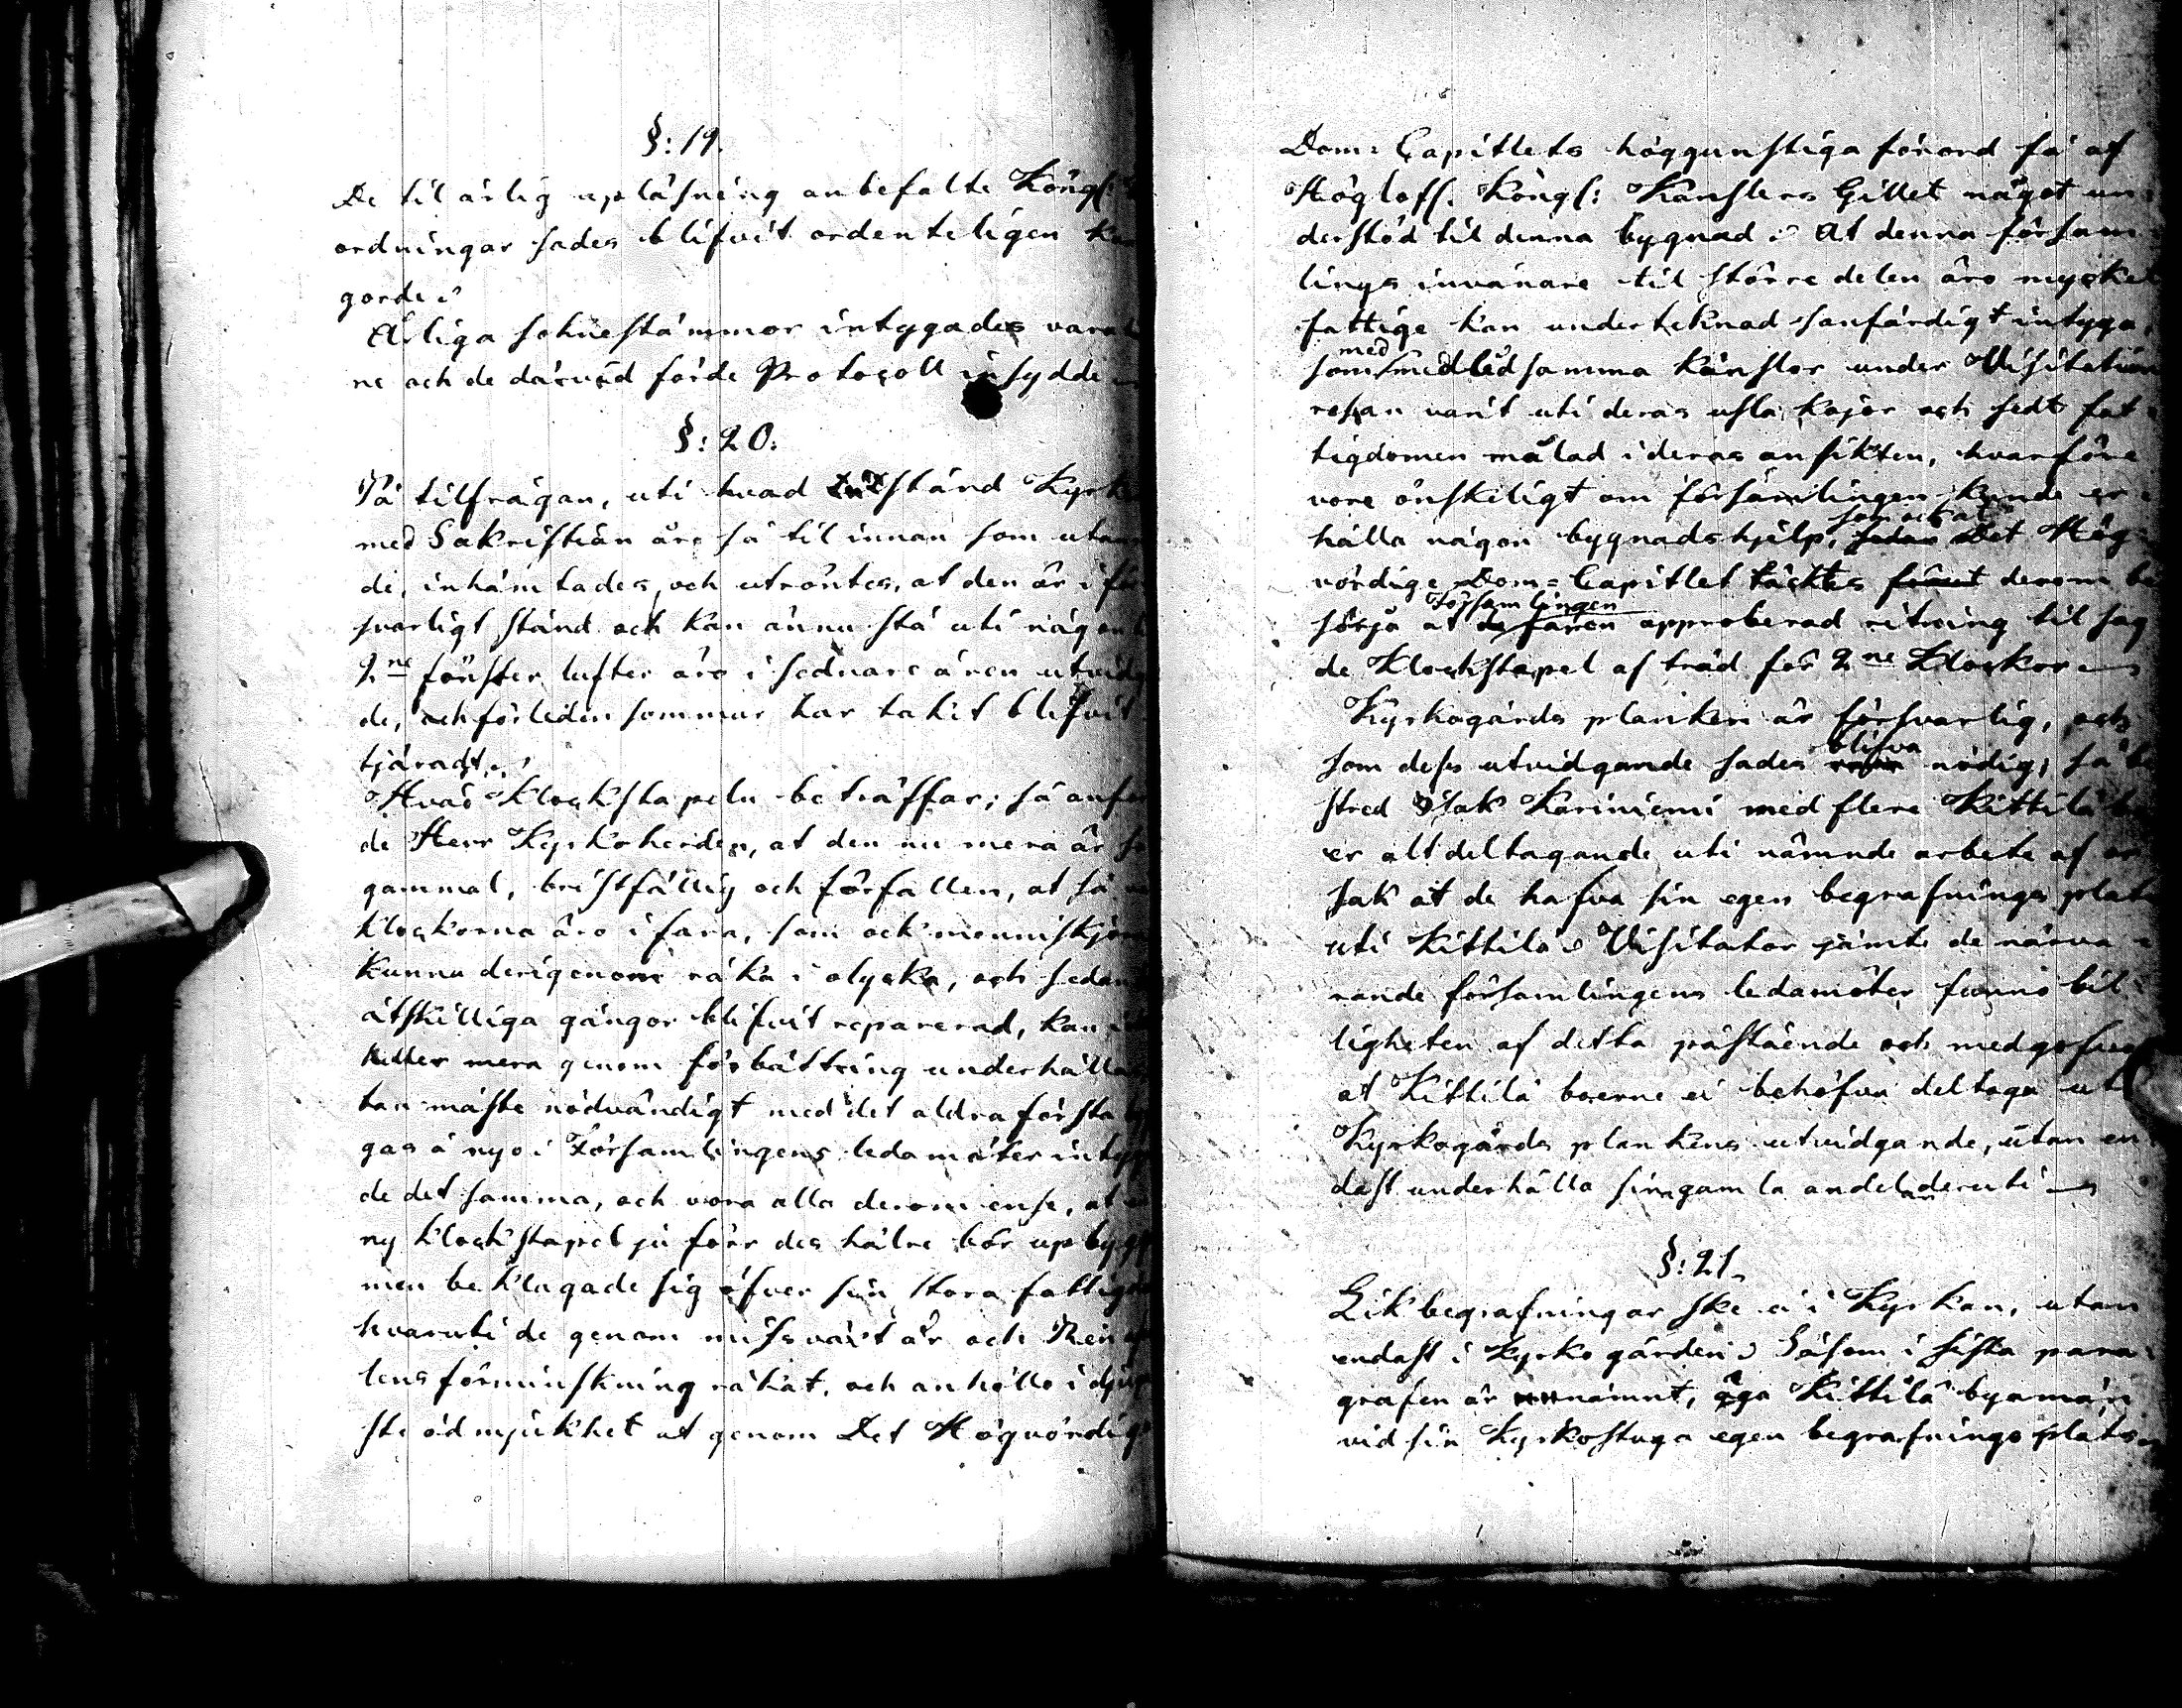 §: 19.
De til årlig upläsning anbefalte Kongl:
ordningar sades blifvit ordenteligen
gorde.
Årliga soknestämmor intygades
ne och de därvid förde Protocoll insydde
§: 20.
På tilfrågan, uti hvad stånd
med Sakristian är så til innan som
di, inhämtades, och utröntes, at den är i
svarligt stånd och kan ännu stå uti
2ne fönster lufter äro i sednare åren
de, och förleden sommar har taket blifvit
tjäradt.
Hvad Klockstapeln beträffar; så
de Herr Kyrkoherden, at den nu mera är
gammal, bristfällig och förfallen, at så
klockorna äro i fara, som ock
kunna derigenom råka i olycka, och
åtskilliga gångor blifvit reparerad, kan
heller mera genom förbättring
tan måste nödvändigt med det aldra första
gas å nyo: Församlingens ledamöter
de det samma, och voro alla derom ense, at
ny klockstapel ju förr des hälre bör
men beklagade sig öfver sin stora
hvaruti de genom missväxt år och
lens förminskning råkat, och anhöllo i
ste ödmjukhet at genom Det Högvördige
Dom=Capitlets höggunstiga förord få af
Höglofl. Kongl: Kanslers Gillet något un-
derstöd til denna bygnad. At denna försam-
lings invånare til större delen äro mycket
fattige kan undertecknad sanfärdigt intyga,
med
som medlidsamma känslor under Visitations
resan varit uti deras usla kojor och sedt fat-
tigdomen målad i deras ansikten, hvarföre
vore önskeligt om församlingen kunde er-
som ock at
hålla någon bygnadshjelp, sedan Det Hög-
vördige Dom=Capitlet täcktes derom be
Församlingen
sörja at de få en approberad ritning til sag
de Klockstapel af träd för 2ne Klockor
Kyrkogårds planken är försvarlig, och
blifva
som dess utvidgande sades vara nödig; så be
stred Isak Kariniemi med flere Kittilä
er alt deltagande uti nämnde arbete af or
sak at de hafva sin egen begrafnings plats
uti Kittilä. Visitator jämte de närva-
rande församlingens ledamöter funno bil-
ligheten af detta påstående och medgofvo
at Kittilä boerne ei behöfva deltaga uti
Kyrkogårds plankens utvidgande, utan en-
dast underhålla sin gamla andel deruti
§: 21.
Lik begrafningar ske ei i Kyrkan, utan
endast i Kyrko gården. Såsom i sista para-
grafen är nämnt, äga Kittilä byamän
vid sin Kyrkostuga egen begrafnings plats